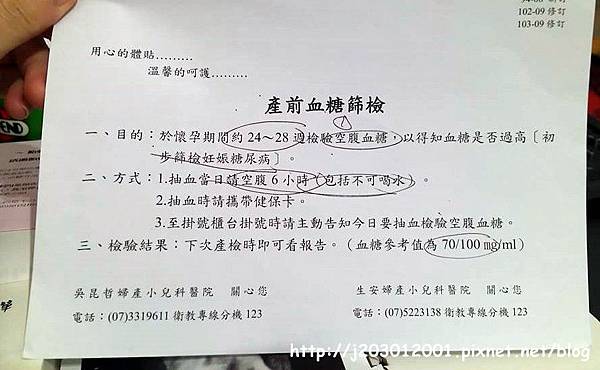 102-09 修訂
103-09 修訂
用心的體貼………
溫馨的呵護………
產前血糖篩檢
一、目的：於懷孕期間約 24～28 週檢驗空腹血糖，以得知血糖是否過高〔初
步篩檢妊娠糖尿病〕。
二、方式：1.抽血當日請空腹 6 小時（包括不可喝水）。
2.抽血時請攜帶健保卡。
3.至掛號櫃台掛號時請主動告知今日要抽血檢驗空腹血糖。
三、檢驗結果：下次產檢時即可看報告。（血糖參考值為 70/100 mg/ml）
吳昆哲婦產小兒科醫院 關心您
生安婦產小兒科醫院 關心您
電話：(07)3319611 衛教專線分機 123
電話：(07)5223138 衛教專線分機 123
http://j203012001.pixnet.net/blog